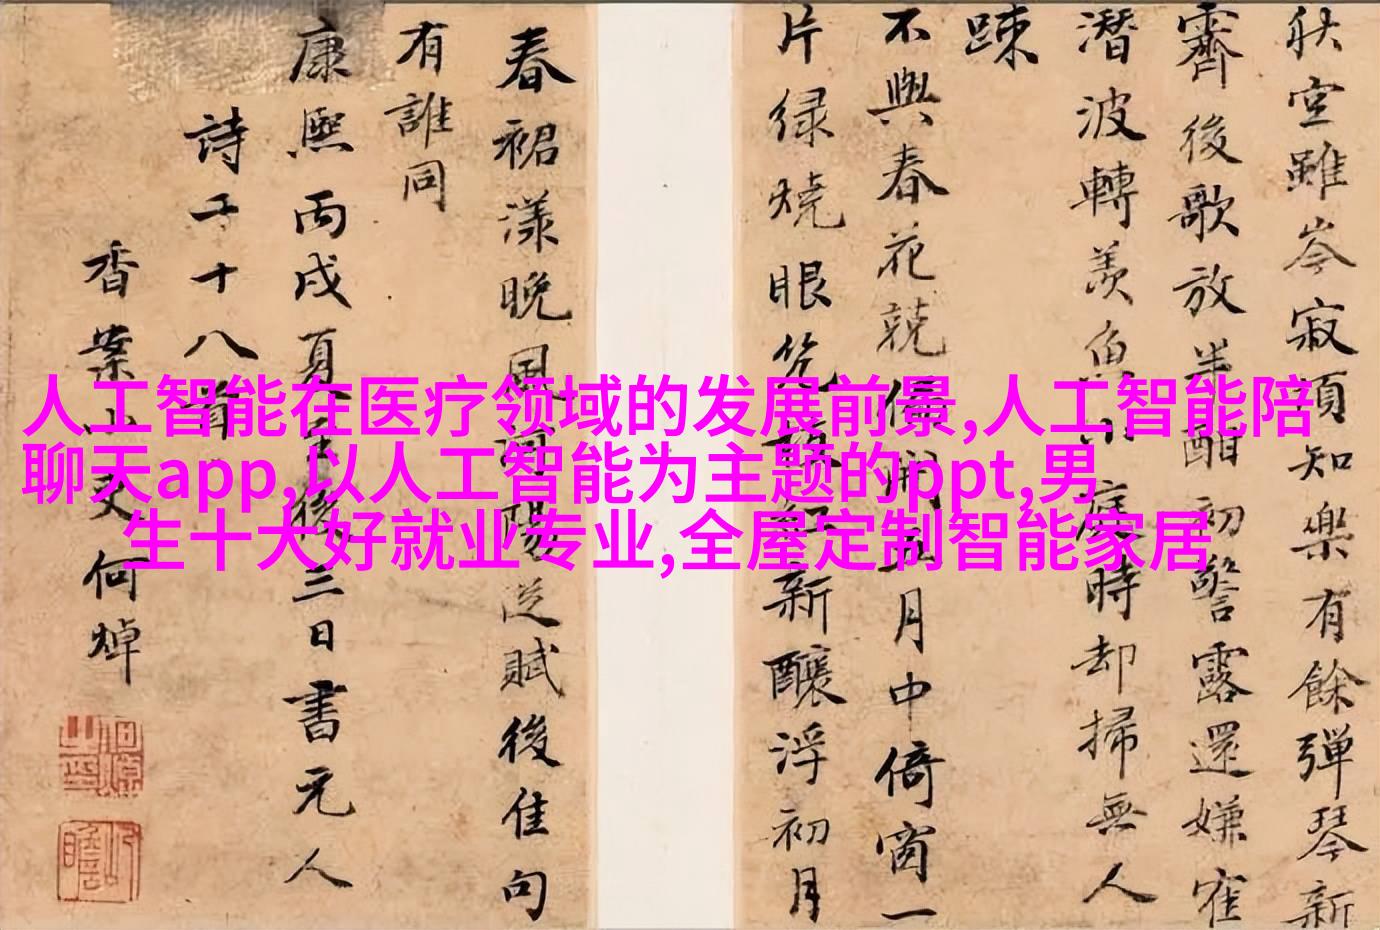 秋空雖岑寂須知樂有餘彈琴新
霽後歌放半酣初警露還嫌寉
潛波轉羨魚小庭時却掃無人
踈
不與春花競偏開五月中倚窗一
片緑燒眼枝紅新釀浮初月
春裙漾晚風河陽從賦後佳句
有誰同
康熙丙戌夏至後三日書元人
詩二十八首
香案小吏何焯
人工智能在医疗领域的发展前景,人工智能陪
聊天app,以人工智能为主题的ppt,男
生十大好就业专业,全屋定制智能家居